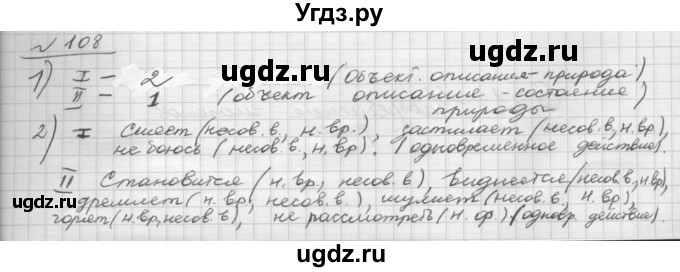 Угдз.ру
№ 108
1) I – 2 (Объект. описания – природа)
II – 1 (объект описание – состояние природы)
2) I Сияет (несов. в., н. вр.), застилает (несов. в, н. вр),
не боюсь (несов. в., н. вр). (одновременное действие).
II Становится (н. вр., несов. в), виднеется (несов. в, н. вр),
дремлет (н. вр, несов. в.), шумит (несов. в, н. вр),
горит (н. вр, несов. в), не рассмотреть (н. ф.) (одновр. действие).
угдз.ру
угдз.ру
угдз.ру
угдз.ру
угдз.ру
угдз.ру